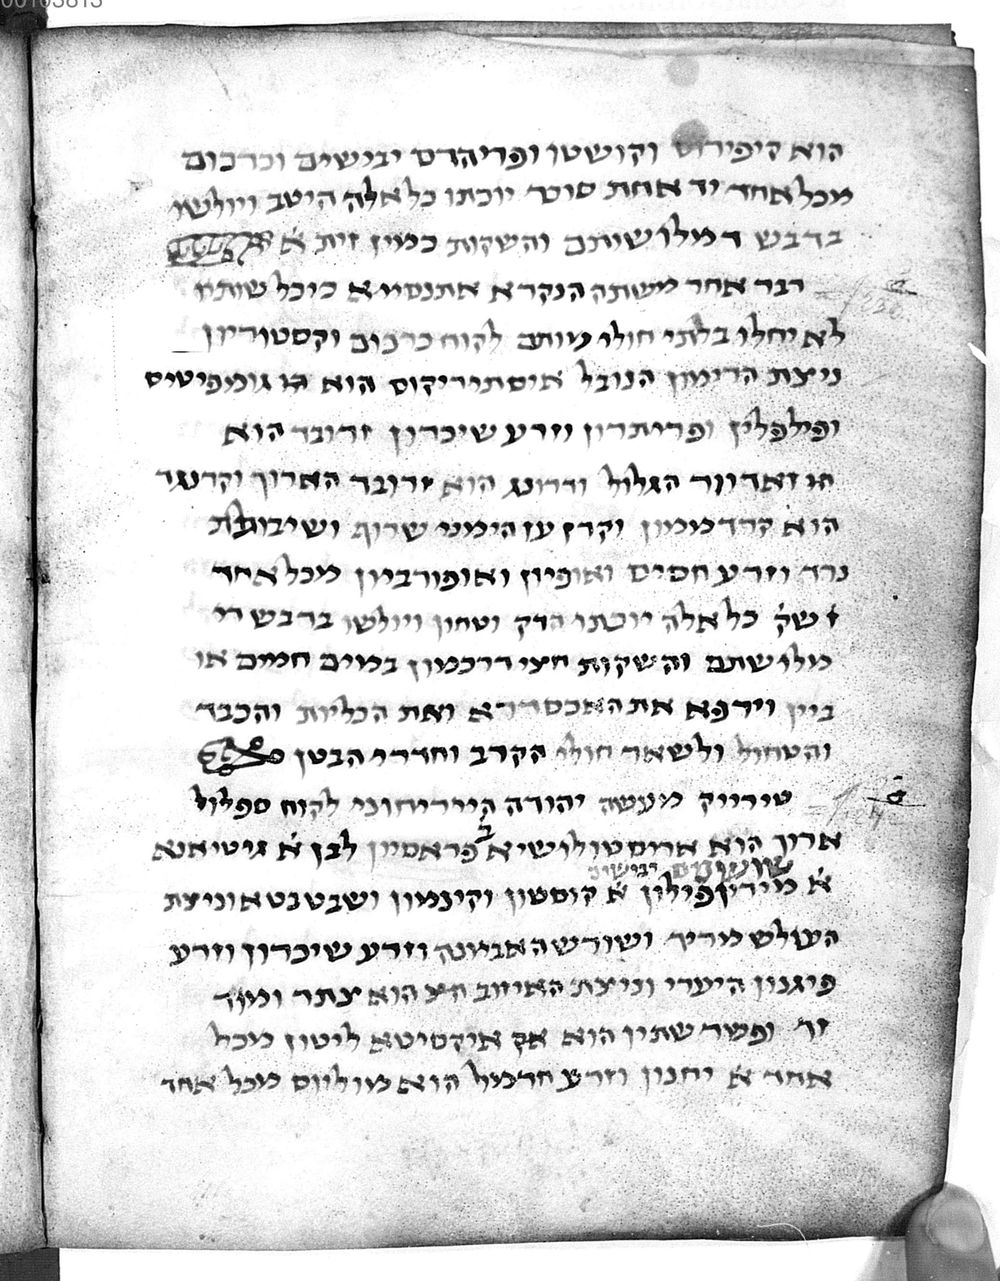 הוא קיפירוס וקושטו ופריהדס יבישים וכרכום
מכל אחד יד אחת סוטר יוכתו כל אלה היטב ויולשו
בדבש ד מלו שיתם והשקות כמין זית א׳
דבר אחר משתה הנקרא אתנסייא כי כל שותיו
לא יחלו בלתי חולי מותם לקוח כרכום וקסטוריון
ניצת הרימון הנובל איסתיריקוס הוא הו גומפיטיס
ופילפלין ופריתרון וזרע שיכרון זרובד הוא
הו זאדוור הגלול ודרונג הוא זרובד הארוך וקרנגד
הוא קרדממון וקרן עז הימני שרוף ושיבולת
נרד וזרע חסים ואופיון ואופורביון מכל אחד
שק׳ כל אלה יוכתו הדק וטחון ויולשו בדבש די
מלו שתם והשקות חצי דרכמון במים חמים או
ביין וירפא את האכסדרא ואת הכליות והכבד
והטחול ולשאר חולי הקרב וחדרי הבטן
טירייק מעשה יהודה היריחוני לקוח ספלול
ארוך הוא אריסטולושיא פראסיון לבן א׳ גיטיאנא
שושנים יבושים
א׳ מירין פילון א׳ קוסטון וקינמון ושבטבטא וניצת
העולש מריר ושורש האביונה וזרע שיכרון וזרע
פיגנון היערי וניצת האיזוב הוא צתר ומור
זך ופשר שתין הוא אק איקסיטא ליטון מכל
אחד א׳ יחנון וזרע חרמיל הוא מוליום מכל אחד